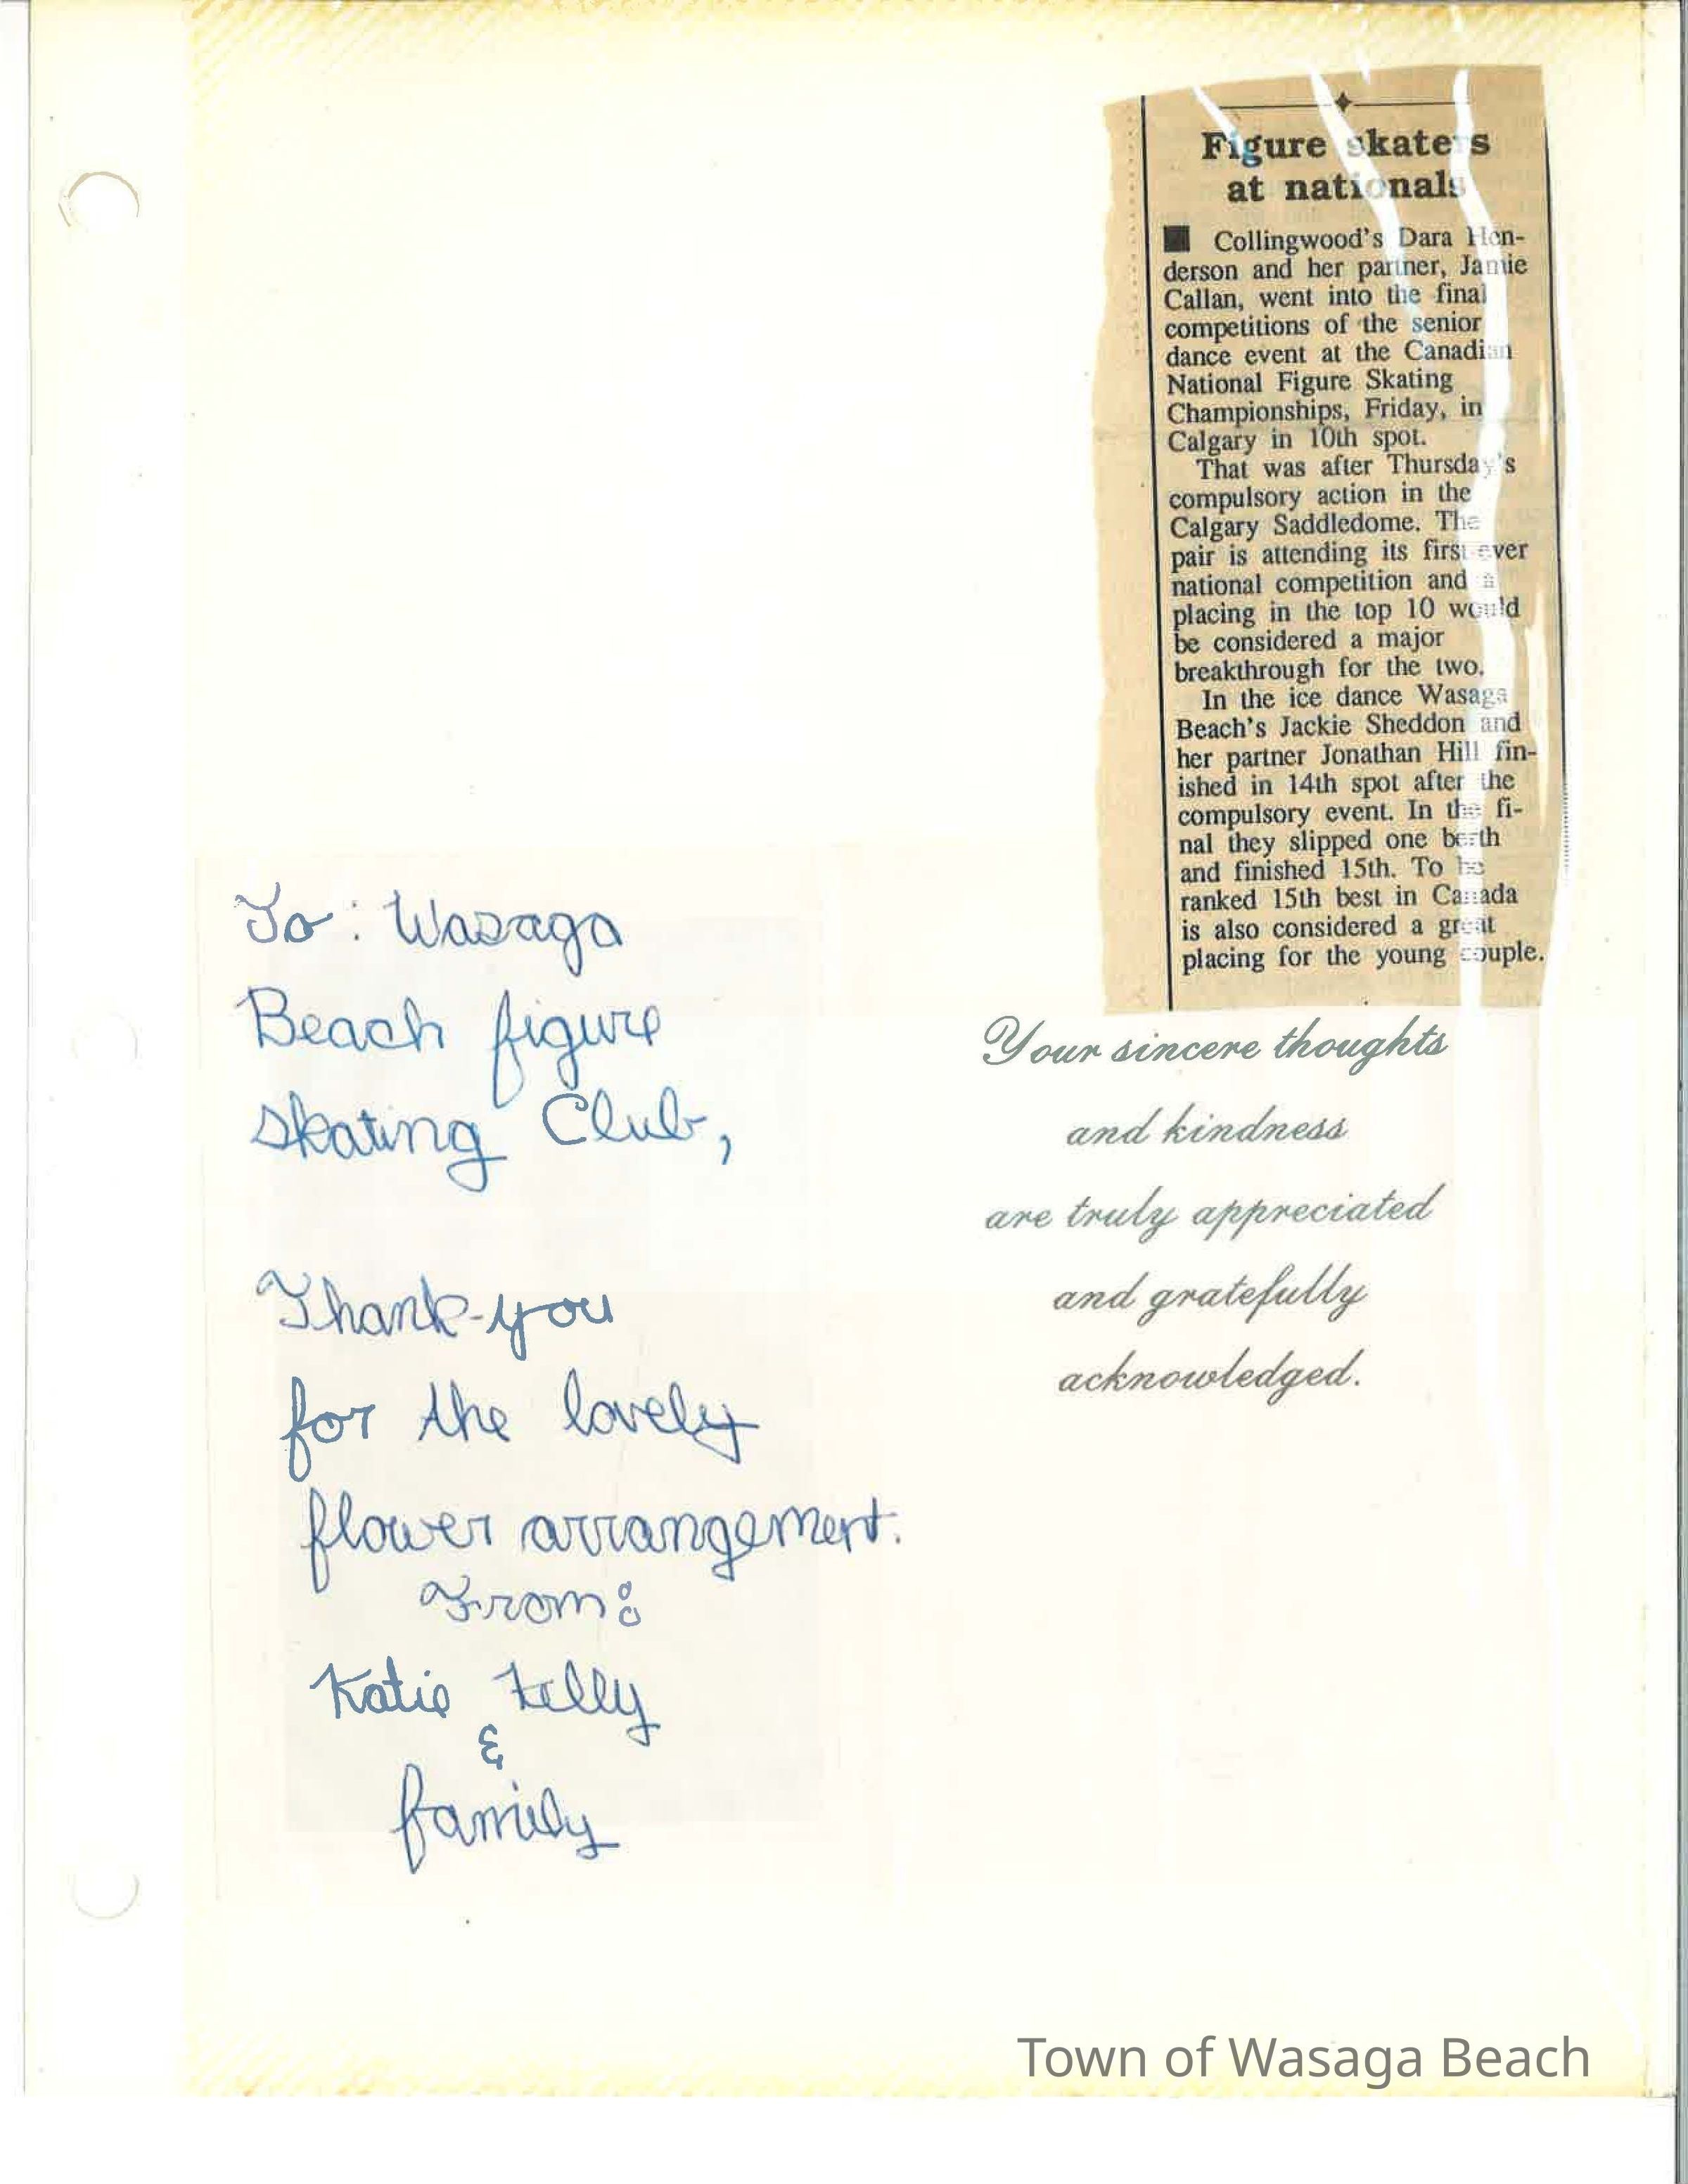 Figure skaters
at nationals
■ Collingwood's Dara Hen-
derson and her partner, Jamie
Callan, went into the final
competitions of the senior
dance event at the Canadian
National Figure Skating
Championships, Friday, in
Calgary in 10th spot.
That was after Thursday's
compulsory action in the
Calgary Saddledome. The
pair is attending its first ever
national competition and a
placing in the top 10 would
be considered a major
breakthrough for the two.
In the ice dance Wasaga
Beach's Jackie Sheddon and
her partner Jonathan Hill fin-
ished in 14th spot after the
compulsory event. In the fi-
nal they slipped one berth
and finished 15th. To be
ranked 15th best in Canada
is also considered a great
placing for the young couple.
To: Wasaga
Beach figure
skating Club,
Thank-you
for the lovely
flower arrangement.
From:
Katie Kelly
&
family
Your sincere thoughts
and kindness
are truly appreciated
and gratefully
acknowledged.
Town of Wasaga Beach